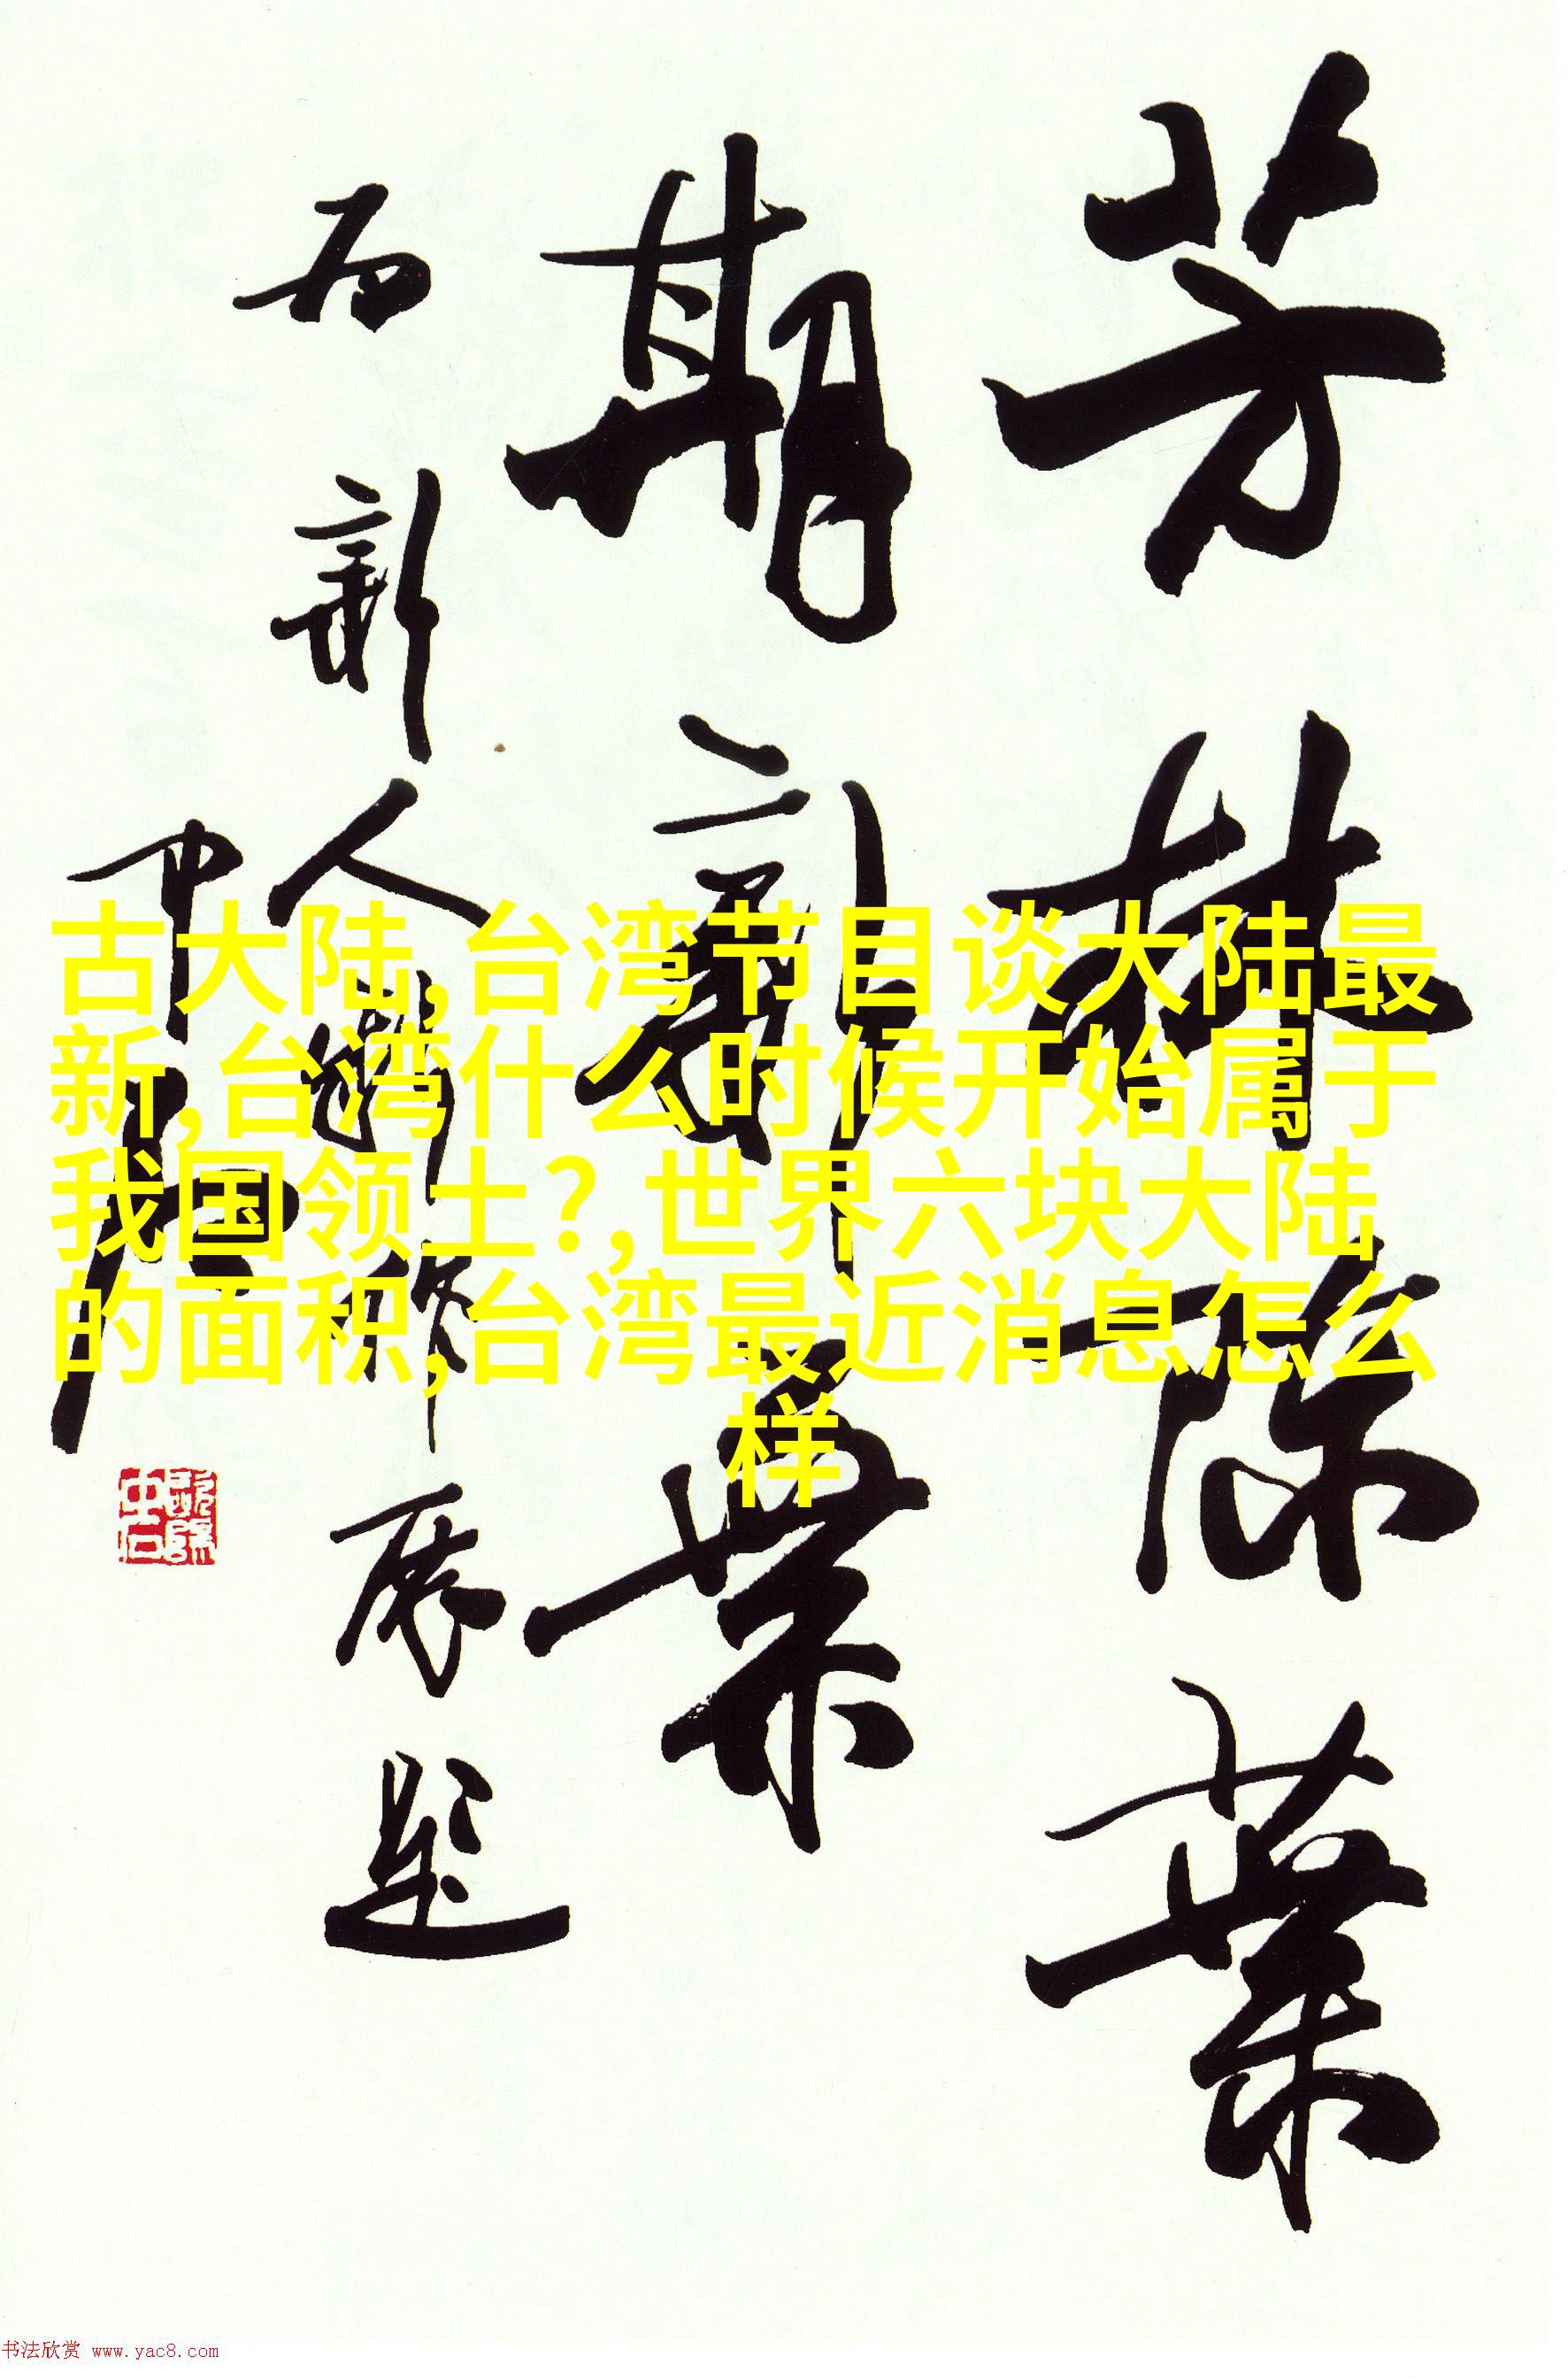 芳林陈葉
期新葉
为新人新作展題
中石
古大陆,台湾节目谈大陆最
新,台湾什么时候开始属于
我国领土?,世界六块大陆
的面积,台湾最近消息怎么
样
书法欣赏 www.yac8.com